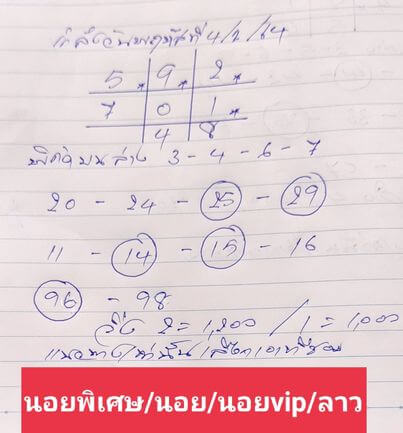 กำลังวันพฤหัสที่ 4/2/64
5 . 9 * 2 *
7 0 1 *
4 8
พิกัดบนล่าง 3 - 4 - 6 - 7
20 - 24 - 25 - 29
11 - 14 - 15 - 16
96 - 98
วิ่ง 2 = 1,200 / 1 = 1,000
แนวทางเท่านั้น
นอยพิเศษ/นอย/นอยvip/ลาว